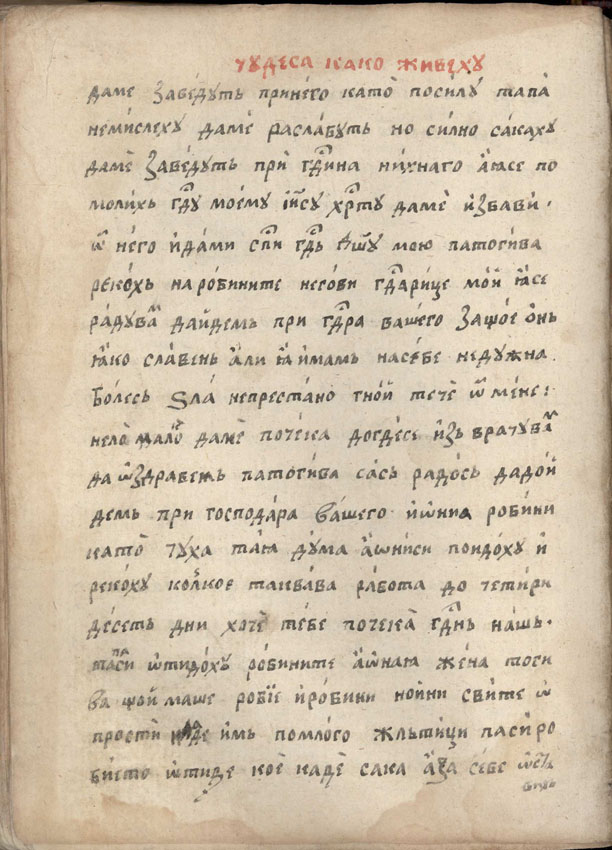 чудеса како живѣху
даме заведуть принего като̀ посилу тапа
немислеху даме̏ раслабуть но силно сакаху
даме̏ заведуть при̏ гд҃ина нихнаго а́ꙗ́се по
молихъ гд҃у моему і҆и҃су хр҃ту даме̏ избави ·
ѿ него и҆дами спи гд҃ъ дш҃у мою патоги́ва
реко́хъ наро́бините негови гд҃арице мои̏ ꙗ҆се
ра́дувамъ дайдемъ при гд҃ра вашего защо́е ѻ҆нь
ꙗ҆ко славень а҆ли ꙗ҆ и҆мамъ насебе недужна
болесь ѕла́ непреста́но гнои̏ тече̏ ѿ мене :
нело мало даме̏ поче́ка догде́се и҆зъ врачувамъ
да ѿздравемъ патоги́ва сасъ радось дадои̏
демъ при господа́ра ва́шего и҆ѡни́а роби́ни
като̀ чуха та́ꙗ дума а҆ѡниси поидо́ху и҆
реко́ху колкое така́ва ра́бота до четири
де́сеть дни хоче̏ те́бе почека̏ гд҃нь нашъ ·
тапаси ѿтидо́ху ро́бините а҆ѡ҆наꙗ же́на тоси
ва що́й маше робіе и҆робини но́ини сви́те ѿ
прости даде и҆мъ помло́го жльтици паси́ ро
біето ѿтиде кое̏ каде̏ сака а҆за̏ се́бе ѡ҆ста
вихъ